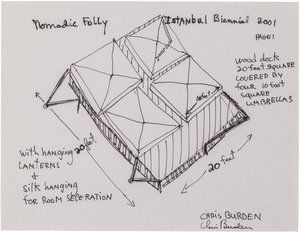 Nomadic Folly
ISTANBUL Biennial 2001
PAGE 1
wood deck
20 feet square
COVERED by
four 10 foot
square
UMBRELLAS
10 feet
with hanging
LANTERNS
&
silk hanging
FOR ROOM SEPERATION
20 feet
20 feet
CHRIS BURDEN
Chris Burden